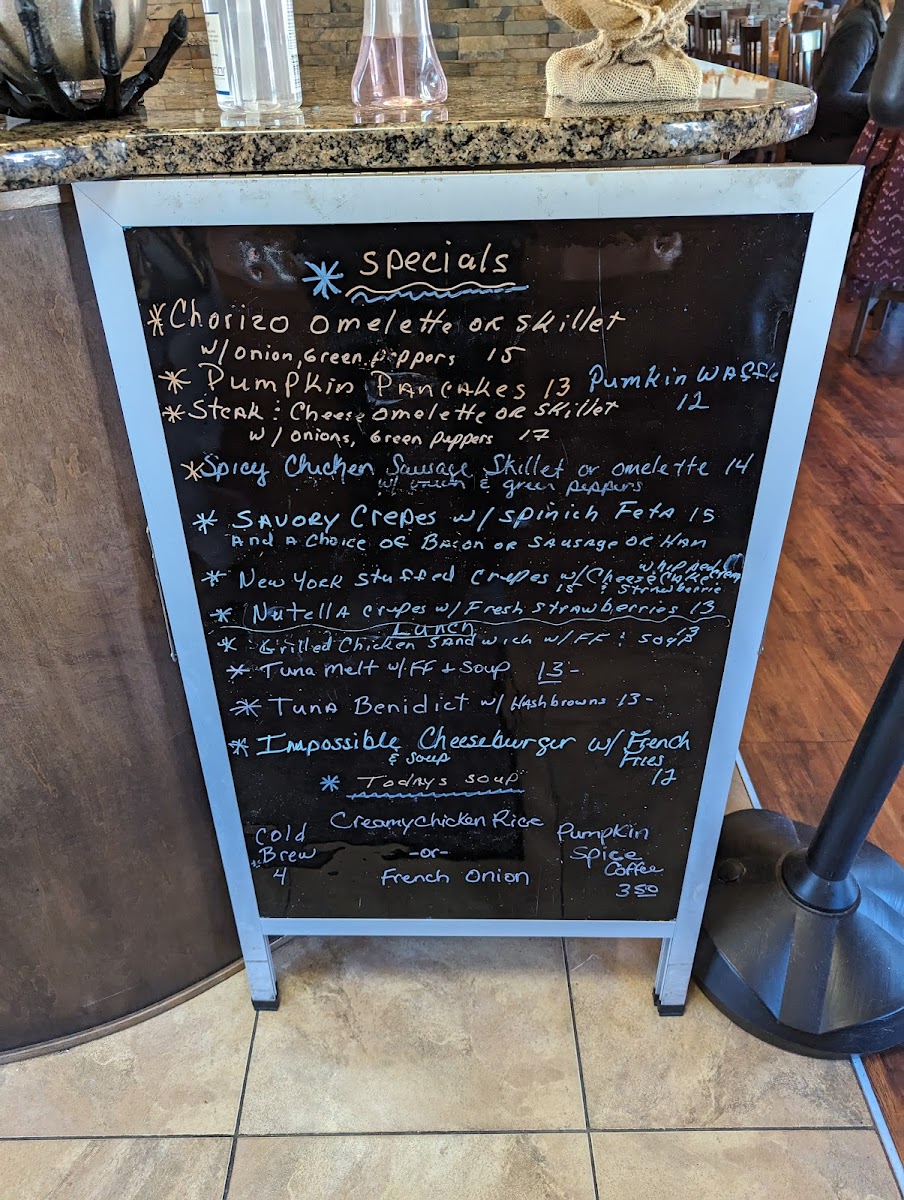 * Specials
* Chorizo omelette or skillet
w/onion, Green peppers 15
* Pumpkin Pancakes 13 Pumkin Waffle
12
* Steak : Cheese omelette or skillet
w/onions, Green peppers 17
* Spicy Chicken Sausage Skillet or omelette 14
w/ onion & green peppers
* Savory Crepes w/ spinich Feta 15
And A Choice of Bacon or Sausage or Ham
* New York stuffed crepes w/Cheese Cake whipped cream
15 & strawberrie
* Nutella crepes w/ Fresh strawberries 13
Lunch
* Grilled Chicken sandwich w/FF & soup 13
* Tuna melt w/FF + Soup 13-
* Tuna Benidict w/ Hashbrowns 13-
* Impossible Cheeseburger w/ French Fries
& soup 12
* Todays soup
Creamy Chicken Rice
-or-
French Onion
Cold
Brew
4
Pumpkin
Spice
Coffee
3.50